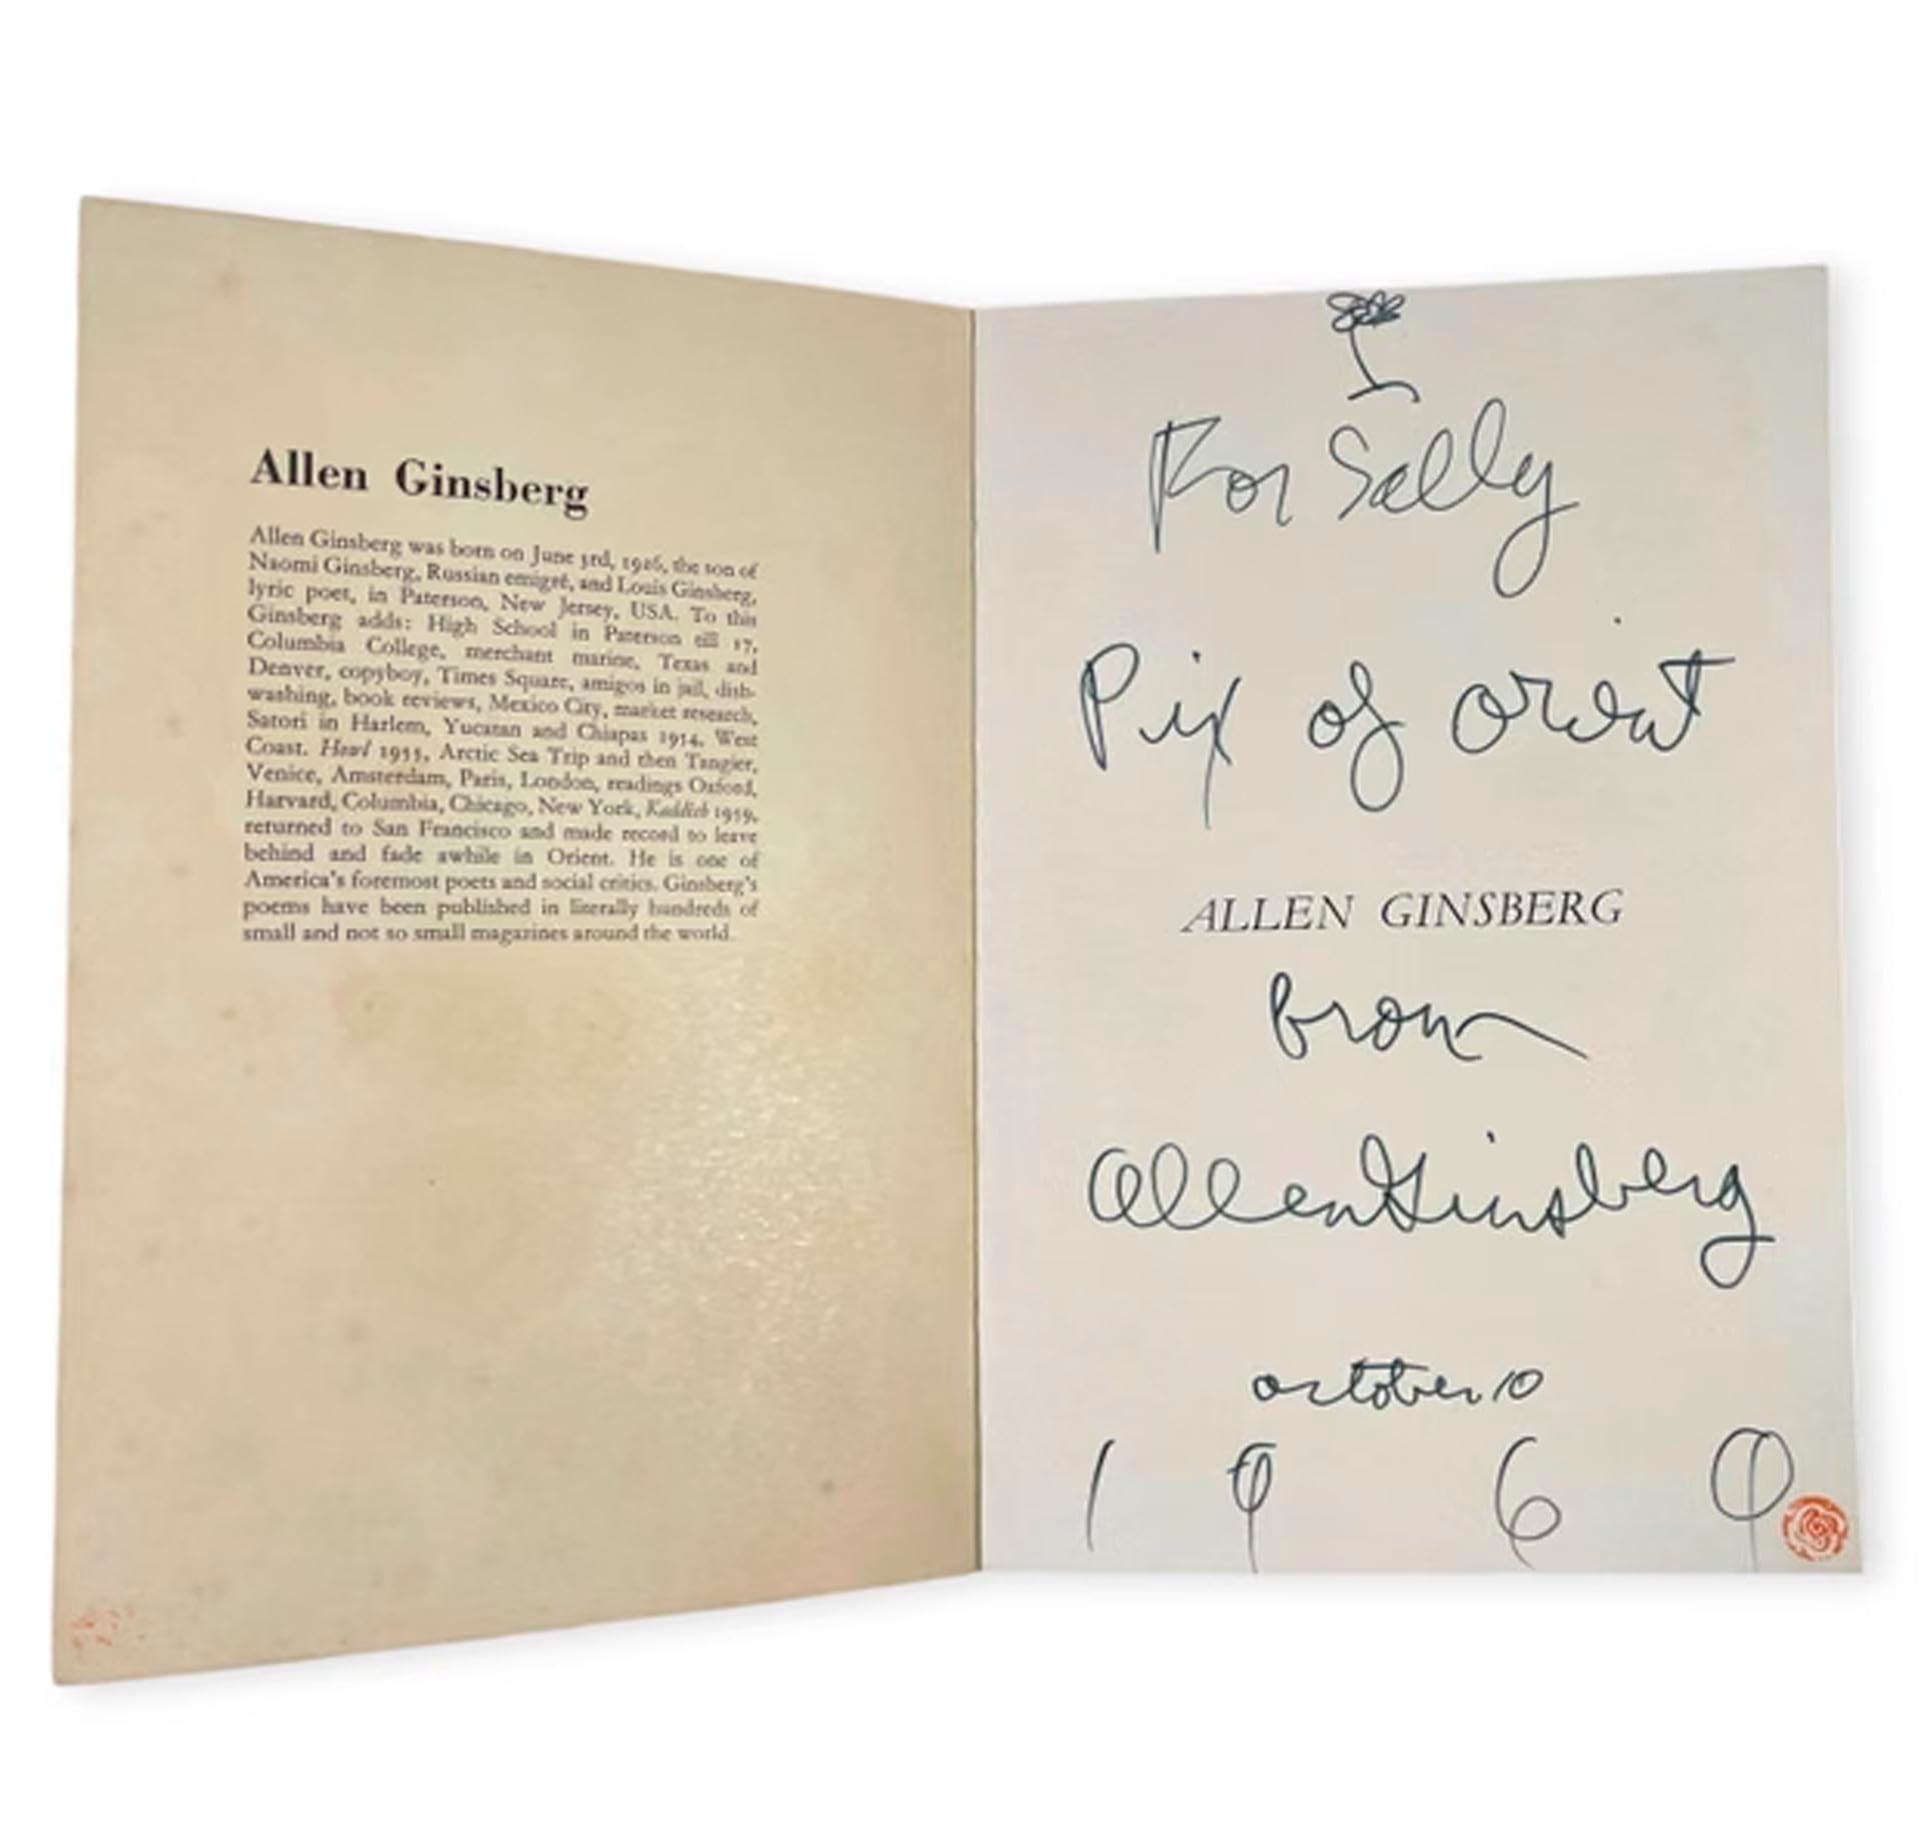 Allen Ginsberg
Allen Ginsberg was born on June 3rd, 1926, the son of
Naomi Ginsberg, Russian emigré, and Louis Ginsberg,
lyric poet, in Paterson, New Jersey, USA. To this
Ginsberg adds: High School in Paterson till 17,
Columbia College, merchant marine, Texas and
Denver, copyboy, Times Square, amigos in jail, dish-
washing, book reviews, Mexico City, market research,
Satori in Harlem, Yucatan and Chiapas 1954, West
Coast. Howl 1955, Arctic Sea Trip and then Tangier,
Venice, Amsterdam, Paris, London, readings Oxford,
Harvard, Columbia, Chicago, New York, Kaddish 1959,
returned to San Francisco and made record to leave
behind and fade awhile in Orient. He is one of
America's foremost poets and social critics. Ginsberg's
poems have been published in literally hundreds of
small and not so small magazines around the world.
For Sally
Pix of orient
ALLEN GINSBERG
from
Allen Ginsberg
october 10
1969